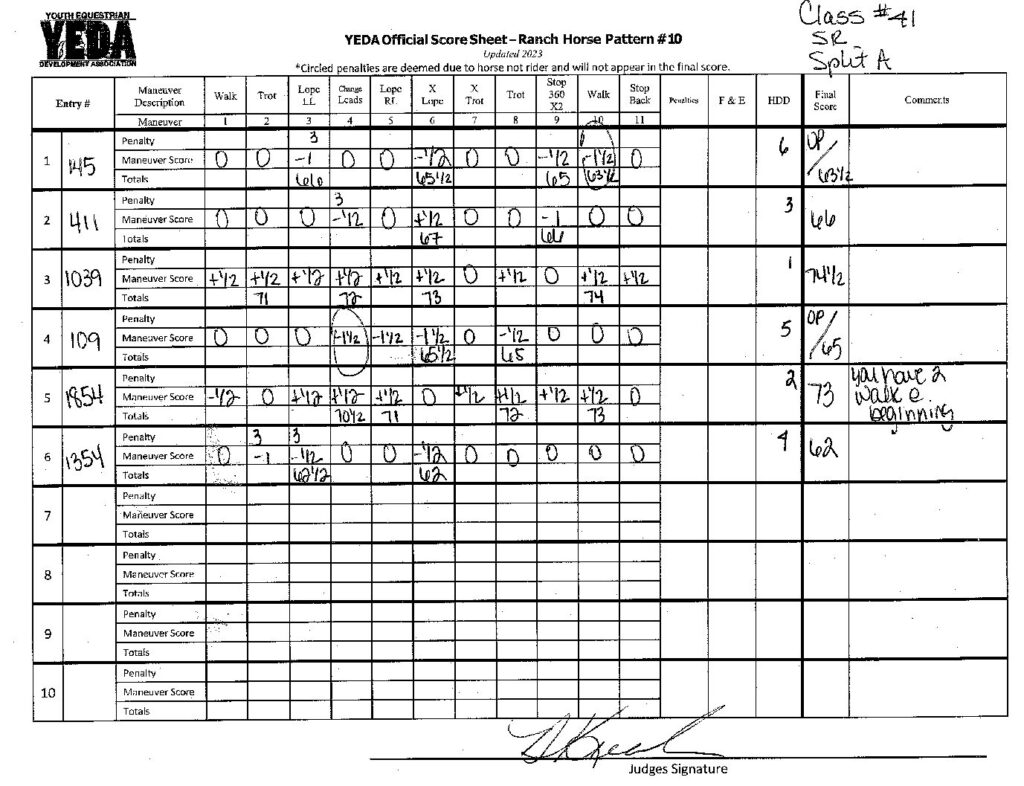 YOUTH EQUESTRIAN
YEDA
DEVELOPMENT ASSOCIATION
Class #41
SR
Split A
YEDA Official Score Sheet – Ranch Horse Pattern #10
Updated 2023
*Circled penalties are deemed due to horse not rider and will not appear in the final score.
Entry # Maneuver Description Walk Trot Lope LL Change Leads Lope RL X Lope X Trot Trot Stop 360 X2 Walk Stop Back Penalties F & E HDD Final Score Comments
Maneuver 1 2 3 4 5 6 7 8 9 10 11
1 145 6 OP / 63 1/2
Penalty 3
Maneuver Score 0 0 -1 0 0 -1/2 0 0 -1/2 -1 1/2 0
Totals 66 65 1/2 65 63 1/2
2 411 3 66
Penalty 3
Maneuver Score 0 0 0 -1/2 0 +1/2 0 0 -1 0 0
Totals 67 66
3 1039 1 74 1/2
Penalty
Maneuver Score +1/2 +1/2 +1/2 +1/2 +1/2 +1/2 0 +1/2 0 +1/2 +1/2
Totals 71 72 73 74
4 109 5 OP / 65
Penalty
Maneuver Score 0 0 0 -1 1/2 -1 1/2 -1 1/2 0 -1/2 0 0 0
Totals 65 1/2 65
5 1854 2 73 you have a walk @ beginning
Penalty
Maneuver Score -1/2 0 +1/2 +1/2 +1/2 0 +1/2 +1/2 +1/2 +1/2 0
Totals 70 1/2 71 72 73
6 1354 4 62
Penalty 3 3
Maneuver Score 0 -1 -1/2 0 0 -1/2 0 0 0 0 0
Totals 62 1/2 62
7
Penalty
Maneuver Score
Totals
8
Penalty
Maneuver Score
Totals
9
Penalty
Maneuver Score
Totals
10
Penalty
Maneuver Score
Totals
Judges Signature